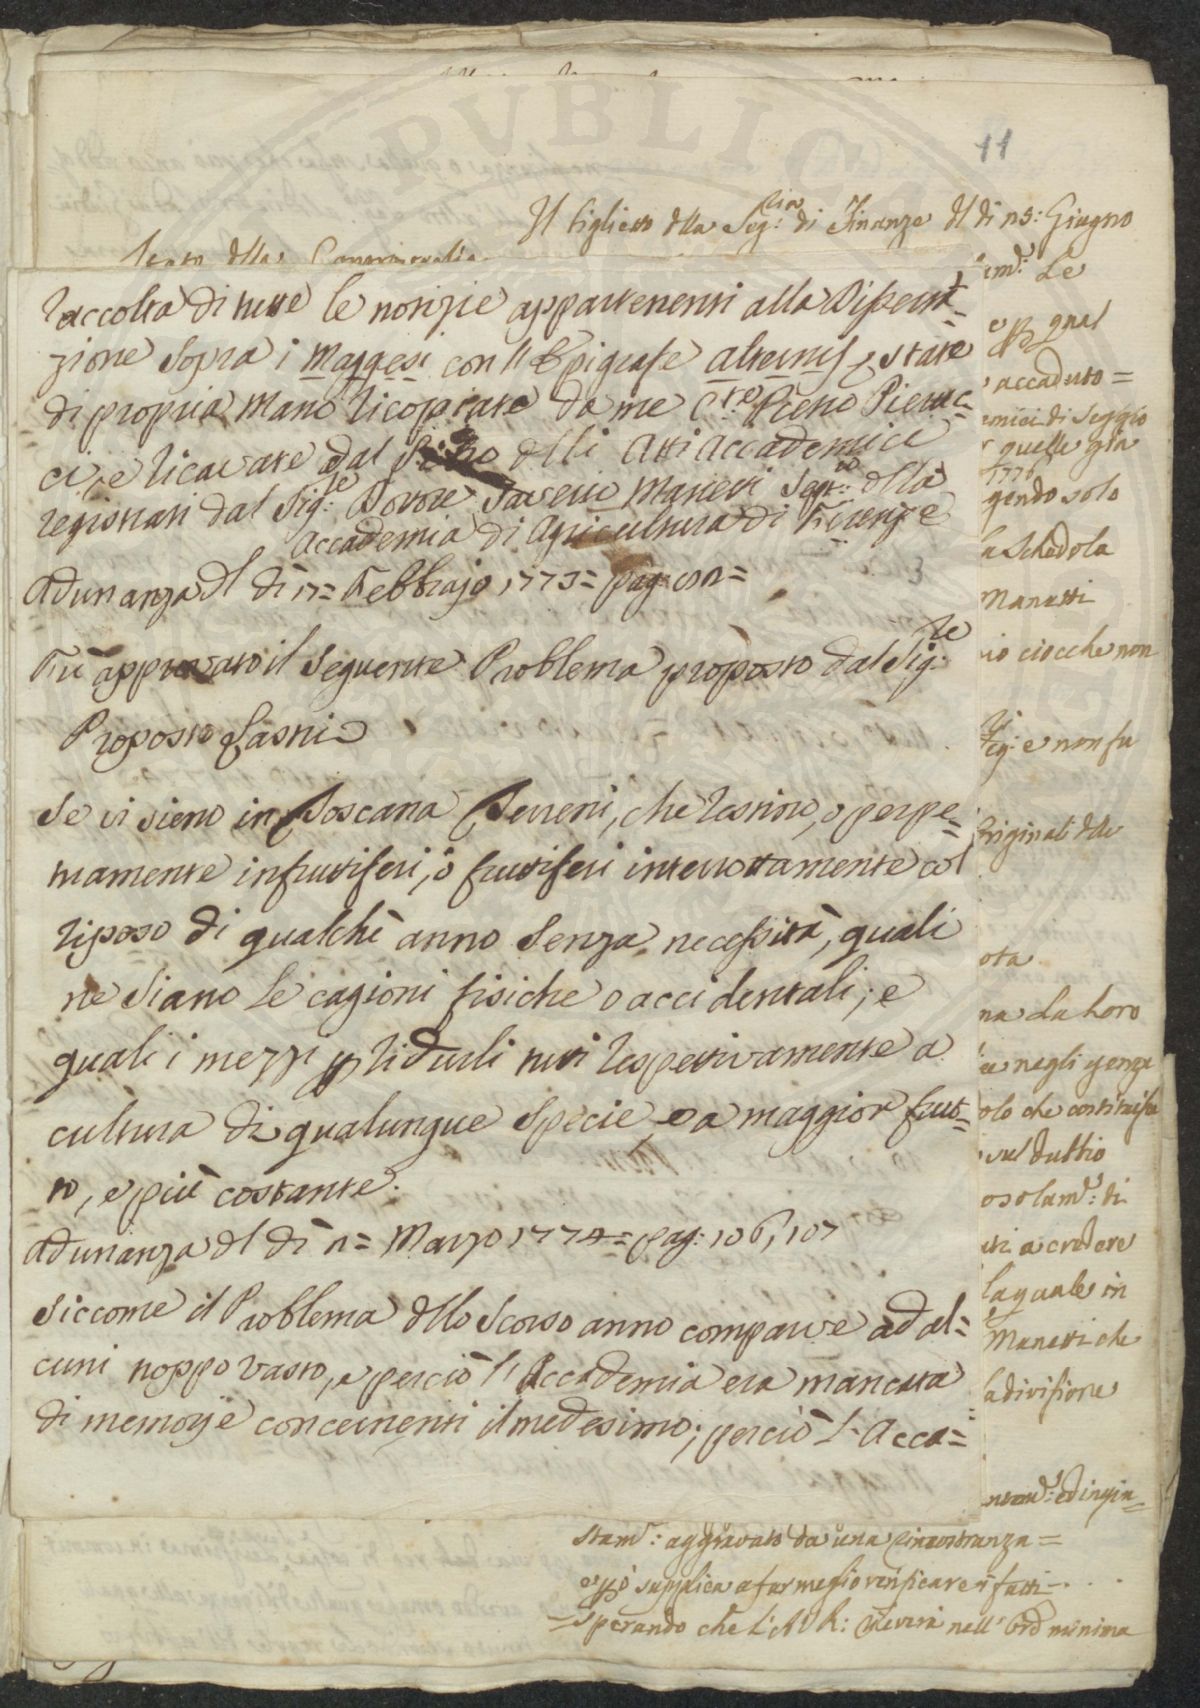 PUBLIC
11
Il biglietto dlla Seg:ria di Finanze dl dì 13: Giugno
Raccolta di tutte le notizie appartenenti alla Disserta=
zione sopra i Maggesi con l'Epigrafe alternis, state
di propria Mano ricopiate da me Pietro Pierac=
ci, e ricavate dal delli Atti Accademici
registrati dal Sig:re Dottore Saverio Manetti Segr:io dlla
Accademia di Agricultura di Firenze
Adunanza dl dì = Febbrajo 1773 = pag:
Fu approvato il seguente Problema proposto dal Sig:re
Proposto Lastri
Se vi sieno in Toscana Terreni, che restino, o perpe=
tuamente infruttiferi, o fruttiferi interrottamente col
riposo di qualche anno senza necessità, quali
ne siano le cagioni fisiche o accidentali; e
quali i mezzi p ridurli tutti respettivamente a
cultura di qualunque specie, e a maggior frut=
to, e più costante.
Adunanza dl dì = Marzo 1774 = pag: 106, 107
Siccome il Problema dllo scorso anno comparve ad al=
cuni troppo vasto, e perciò l'Accademia era mancata
di memorie concernenti il medesimo; perciò l'Acca=
am:e Le
qual
accaduto =
emici di Seggio
quelle già
1776
gendo solo
la Schedola
Manetti
io ciocche non
Sig:ri e non fu
Originali dlle
ota
na La Loro
negligenza
olo che costituisce
sul dubbio
o solam:e di
a credere
la quale in
Manetti che
la divisione
ed ingiu=
stam:e aggravato da una circostanza =
supplica a far meglio verificare i fatti - . . .
= sperando che L'A V R: